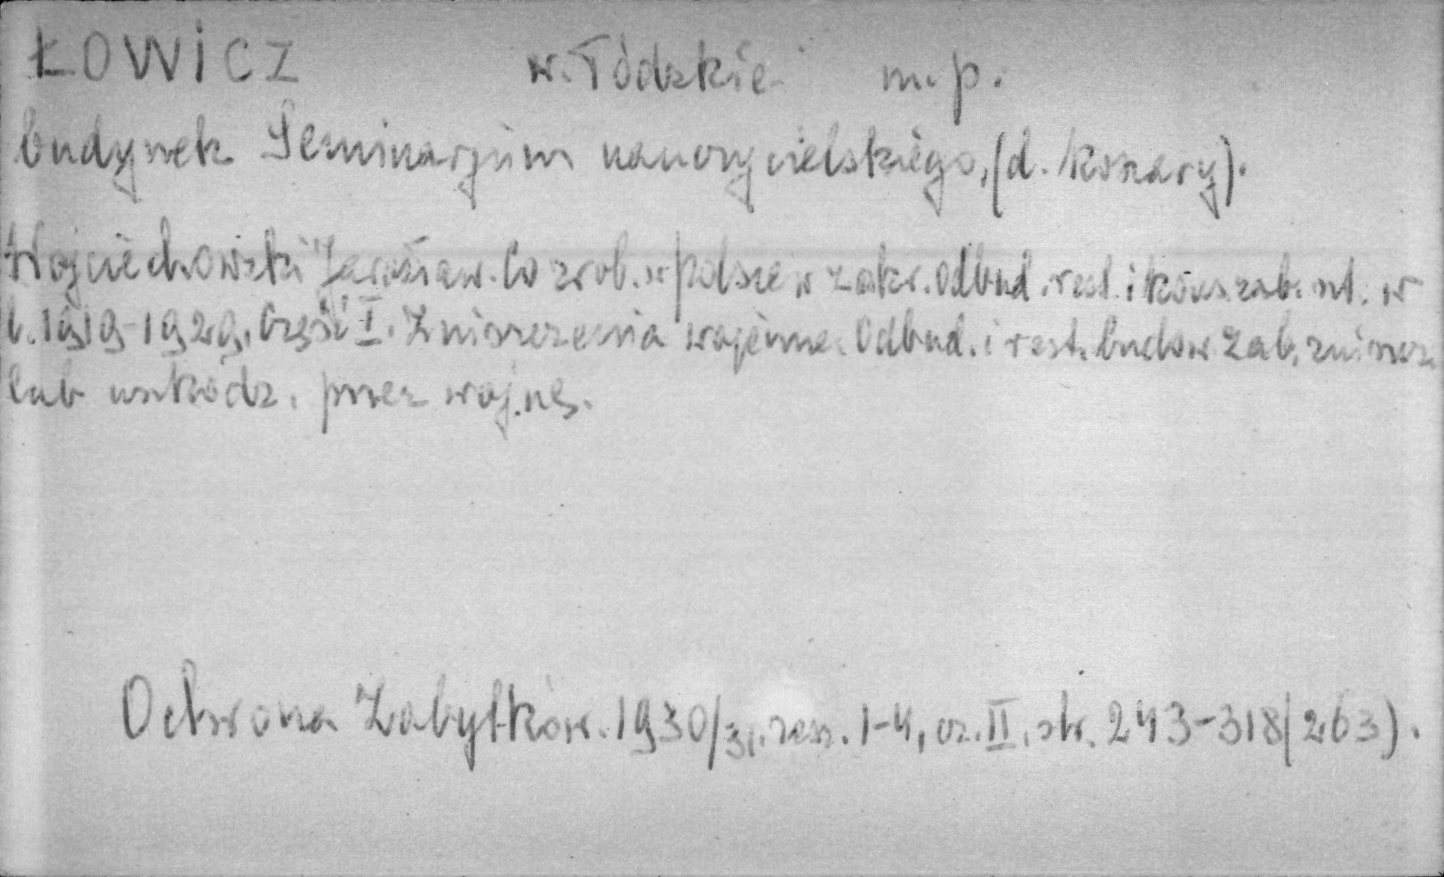 ŁOWICZ w. Łódzkie m.p.
budynek Seminarjum nauczycielskiego, (d. koszary).
Wojciechowski Jarosław. Co zrob. w Polsce w zakr. odbud. rest. i kons. zab. szt. w
l. 1919-1929. Część I. Zniszczenia wojenne. Odbud. i rest. budow. zab. zniszcz.
lub uszkodz. przez wojnę.
Ochrona Zabytków. 1930/31. zesz. 1-4, cz. II. str. 243-318 (263).